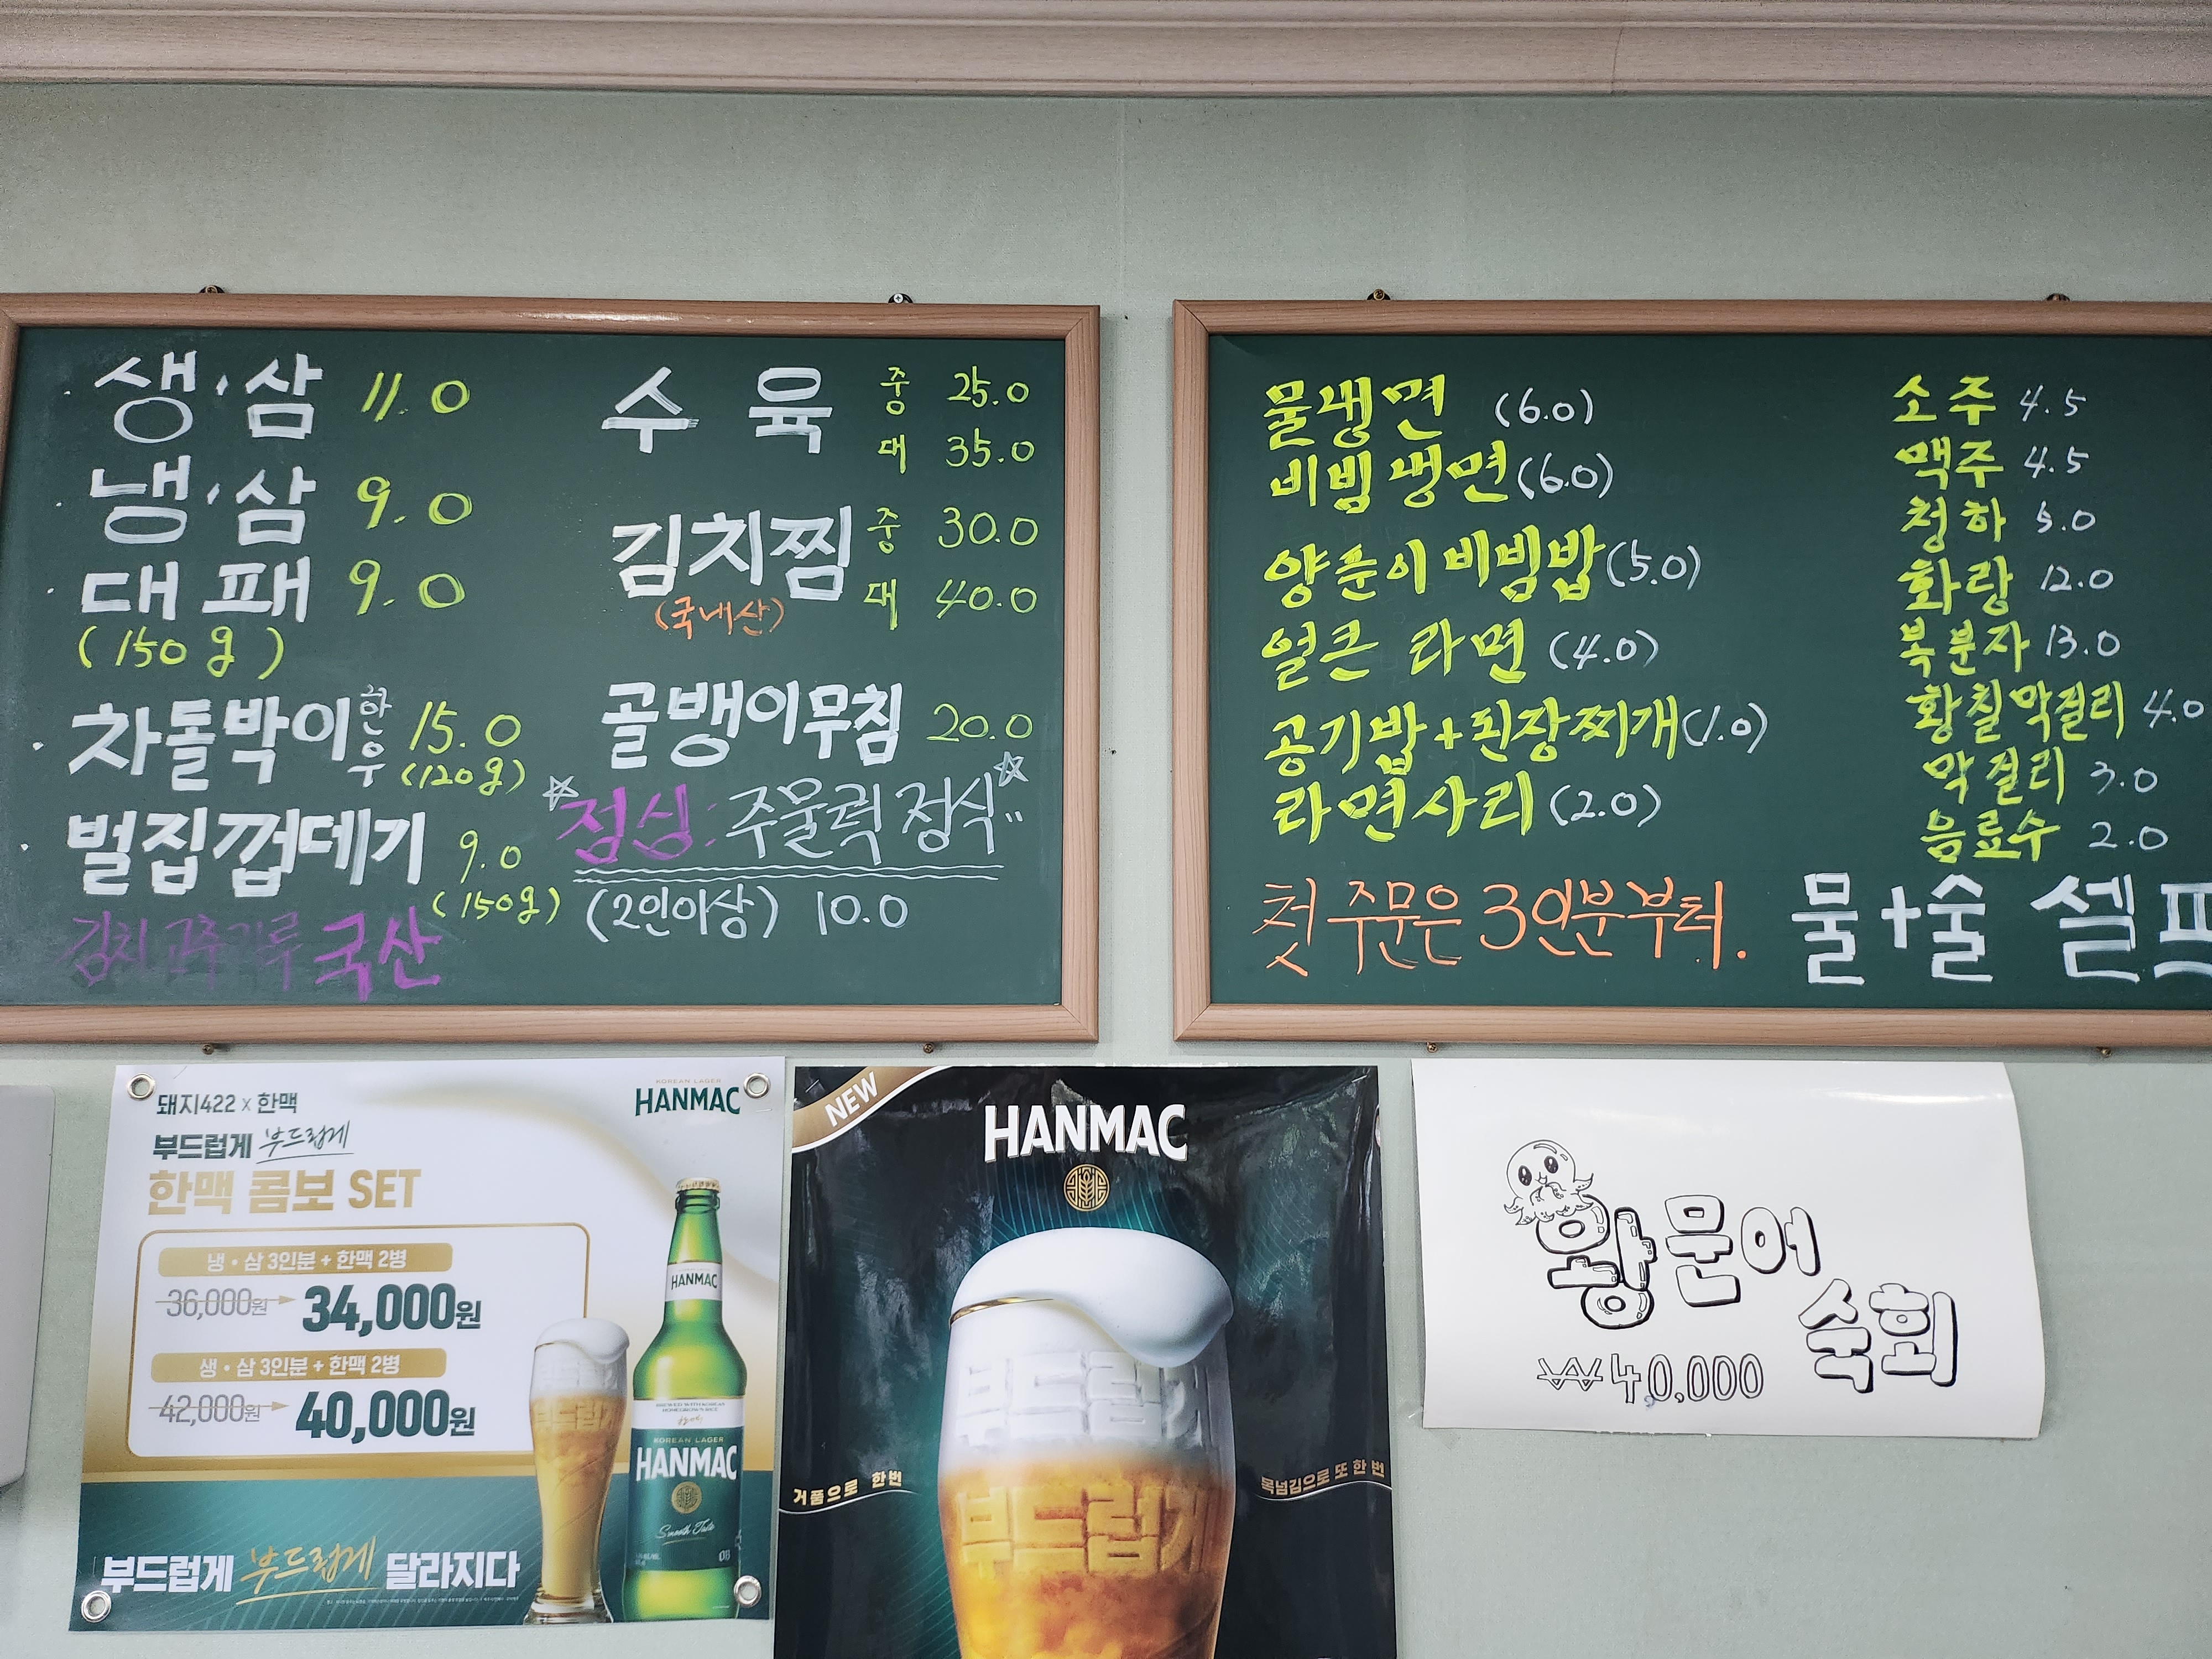 생·삼 11.0
냉·삼 9.0
대패 9.0
(150g)
차돌박이 한우 15.0
(120g)
벌집껍데기 9.0
(150g)
김치 고추가루 국산
수육 중 25.0
대 35.0
김치찜 중 30.0
(국내산) 대 40.0
골뱅이무침 20.0
점심: 주물럭 정식
(2인이상) 10.0
물냉면 (6.0)
비빔냉면 (6.0)
양푼이 비빔밥 (5.0)
얼큰 라면 (4.0)
공기밥+된장찌개 (1.0)
라면사리 (2.0)
첫 주문은 3인분부터.
소주 4.5
맥주 4.5
청하 5.0
화랑 12.0
복분자 13.0
황칠막걸리 4.0
막걸리 3.0
음료수 2.0
물+술 셀프
돼지422 x 한맥
부드럽게 부드럽게
한맥 콤보 SET
냉·삼 3인분 + 한맥 2병
36,000원 34,000원
생·삼 3인분 + 한맥 2병
42,000원 40,000원
부드럽게 부드럽게 달라지다
KOREAN LAGER
HANMAC
HANMAC
KOREAN LAGER
HANMAC
Smooth Taste
OB
부드럽게
NEW
HANMAC
부드럽게
거품으로 한번
목넘김으로 또 한 번
부드럽게
왕문어
숙회
₩40,000